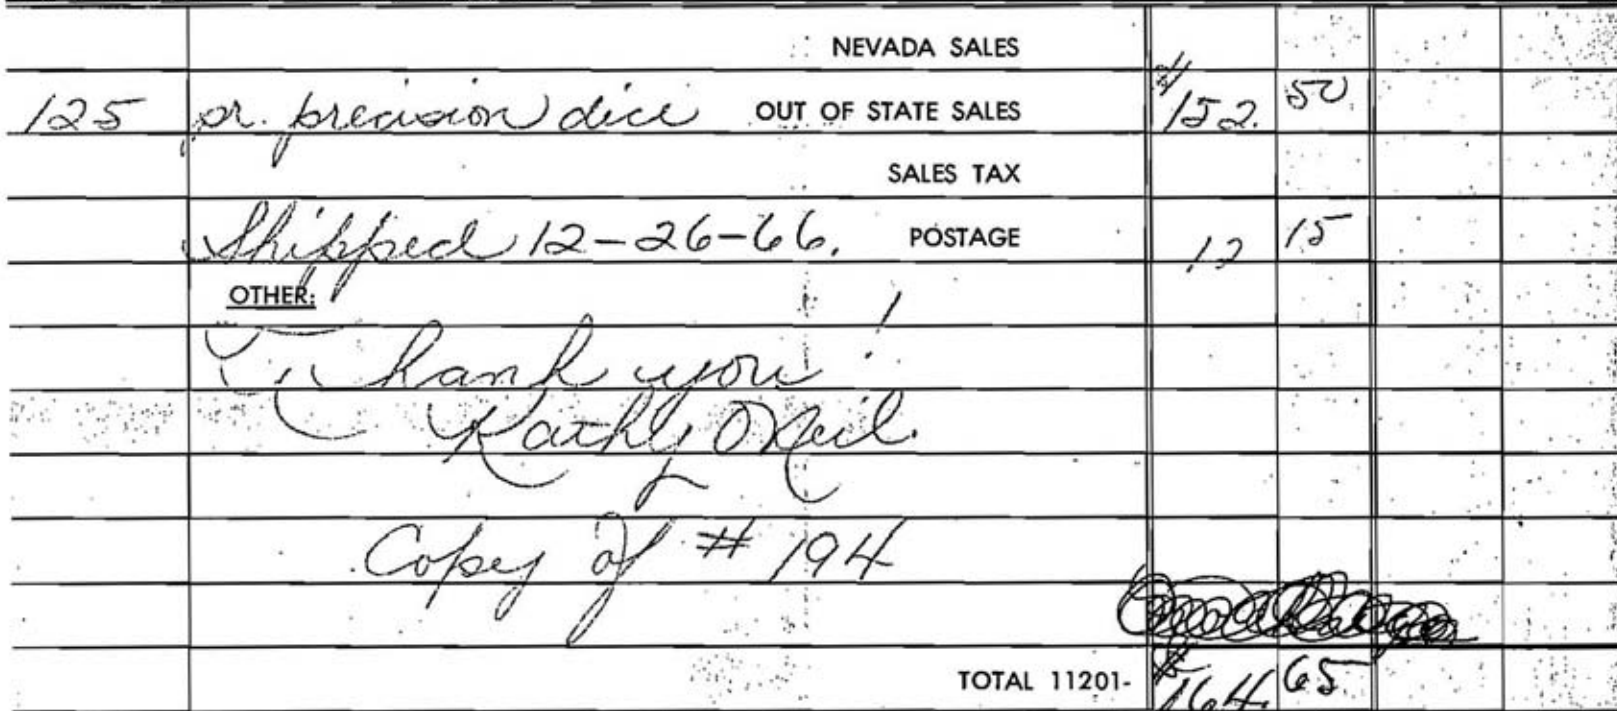 NEVADA SALES
125 pr. precision dice OUT OF STATE SALES $152. 50
SALES TAX
Shipped 12-26-66. POSTAGE 12 15
OTHER:
Thank you!
Kathy O'Neil
Copy of # 194
TOTAL 11201- $164. 65